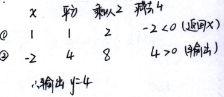 x 平方 乘以2 减去4
① 1 1 2 -2<0 (返回x)
② -2 4 8 4>0 (输出)
∴输出 y=4